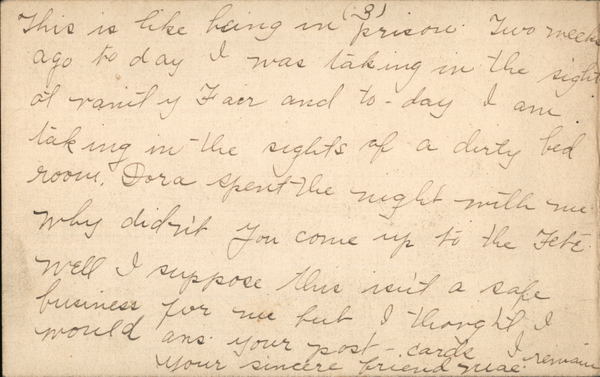 (3)
This is like being in prison. Two weeks
ago to day I was taking in the sight
at vanity Fair and to-day I am
taking in the sights of a dirty bed
room. Dora spent the night with me
Why didn't you come up to the Fete
Well I suppose this isn't a safe
business for me but I thought I
would ans. your post-cards I remain
your sincere friend Mae.